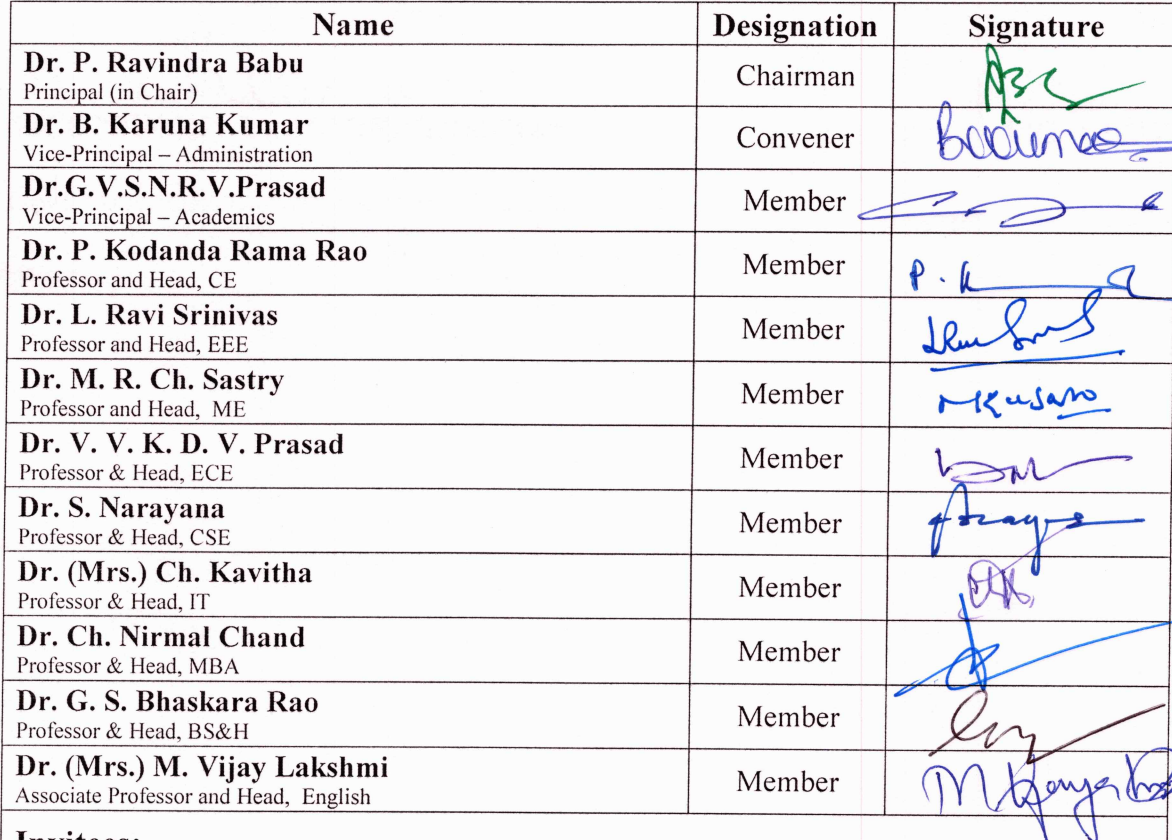 Name Designation Signature
Dr. P. Ravindra Babu
Principal (in Chair)
Chairman
Dr. B. Karuna Kumar
Vice-Principal – Administration
Convener
Dr.G.V.S.N.R.V.Prasad
Vice-Principal – Academics
Member
Dr. P. Kodanda Rama Rao
Professor and Head, CE
Member
P. K
Dr. L. Ravi Srinivas
Professor and Head, EEE
Member
Dr. M. R. Ch. Sastry
Professor and Head, ME
Member
Dr. V. V. K. D. V. Prasad
Professor & Head, ECE
Member
Dr. S. Narayana
Professor & Head, CSE
Member
Dr. (Mrs.) Ch. Kavitha
Professor & Head, IT
Member
Dr. Ch. Nirmal Chand
Professor & Head, MBA
Member
Dr. G. S. Bhaskara Rao
Professor & Head, BS&H
Member
Dr. (Mrs.) M. Vijay Lakshmi
Associate Professor and Head, English
Member
Invitees: